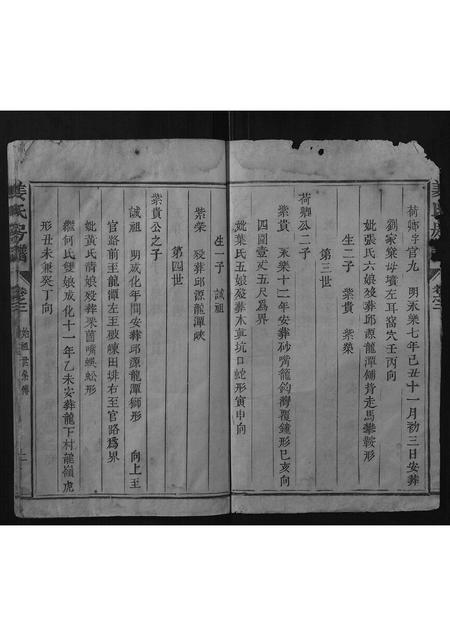 荷卿字官九 明永樂七年己丑十一月初三日安葬
劉家屋母墳左耳窩穴壬丙向
妣張氏六娘歿葬邱源龍潭傾背走馬攀鞍形
生二子 紫貴 紫榮
第三世
荷卿公二子
紫貴 永樂十二年安葬砂嘴籠鈎灣覆鐘形巳亥向
四圍壹丈五尺為界
妣葉氏五娘歿葬木莫坑口蛇形寅申向
紫榮 歿葬邱源龍潭畎
生一子 誠祖
第四世
紫貴公之子
誠祖 明成化年間安葬邱源龍潭獅形 向上至
官路前至龍潭田埂左至礅墈田埂右至官路為界
妣黃氏清娘歿葬菓茵嘴蜈蚣形
繼何氏雙娘成化十一年乙未安葬龍下村龍嶺虎
形丑未兼癸丁向
姜氏 譜 卷之二
二